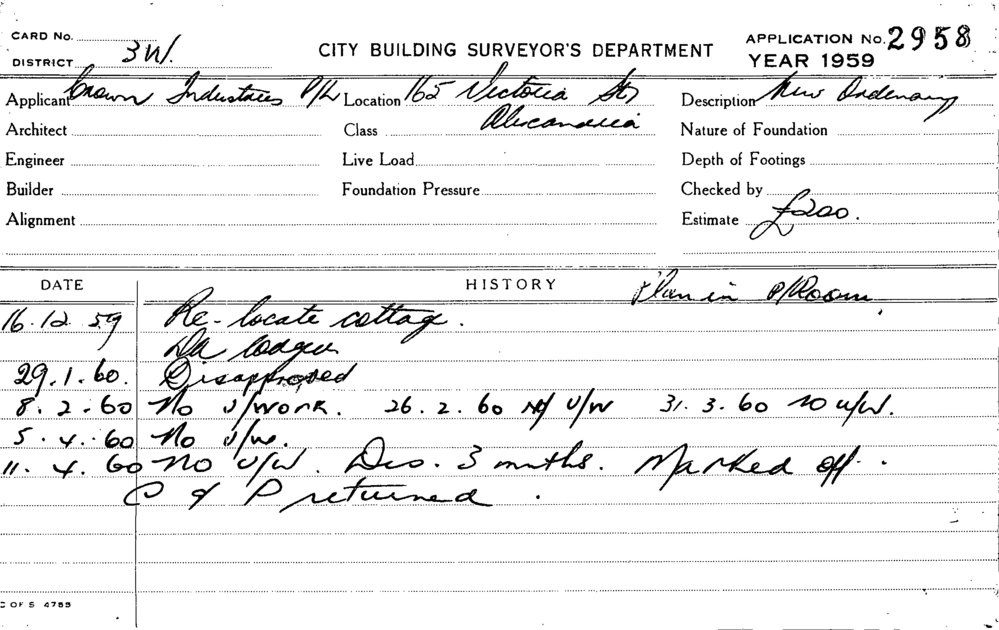 CARD No.
DISTRICT 3W.
CITY BUILDING SURVEYOR'S DEPARTMENT
APPLICATION No. 2958
YEAR 1959
Applicant Crown Industries P/L Location 165 Victoria St, Description New Ordenary
Architect Class Alexandria Nature of Foundation
Engineer Live Load Depth of Footings
Builder Foundation Pressure Checked by
Alignment Estimate £200.
DATE HISTORY Plan in P/Room
16.12.59 Re-locate cottage.
DA lodged
29.1.60. Disapproved
8.2.60 No U/work. 26.2.60 No U/W 31.3.60 no u/w.
5.4.60 No U/w.
11.4.60 no U/W. Dis. 3 mnths. Marked off.
C & P returned.
C OF S 4755